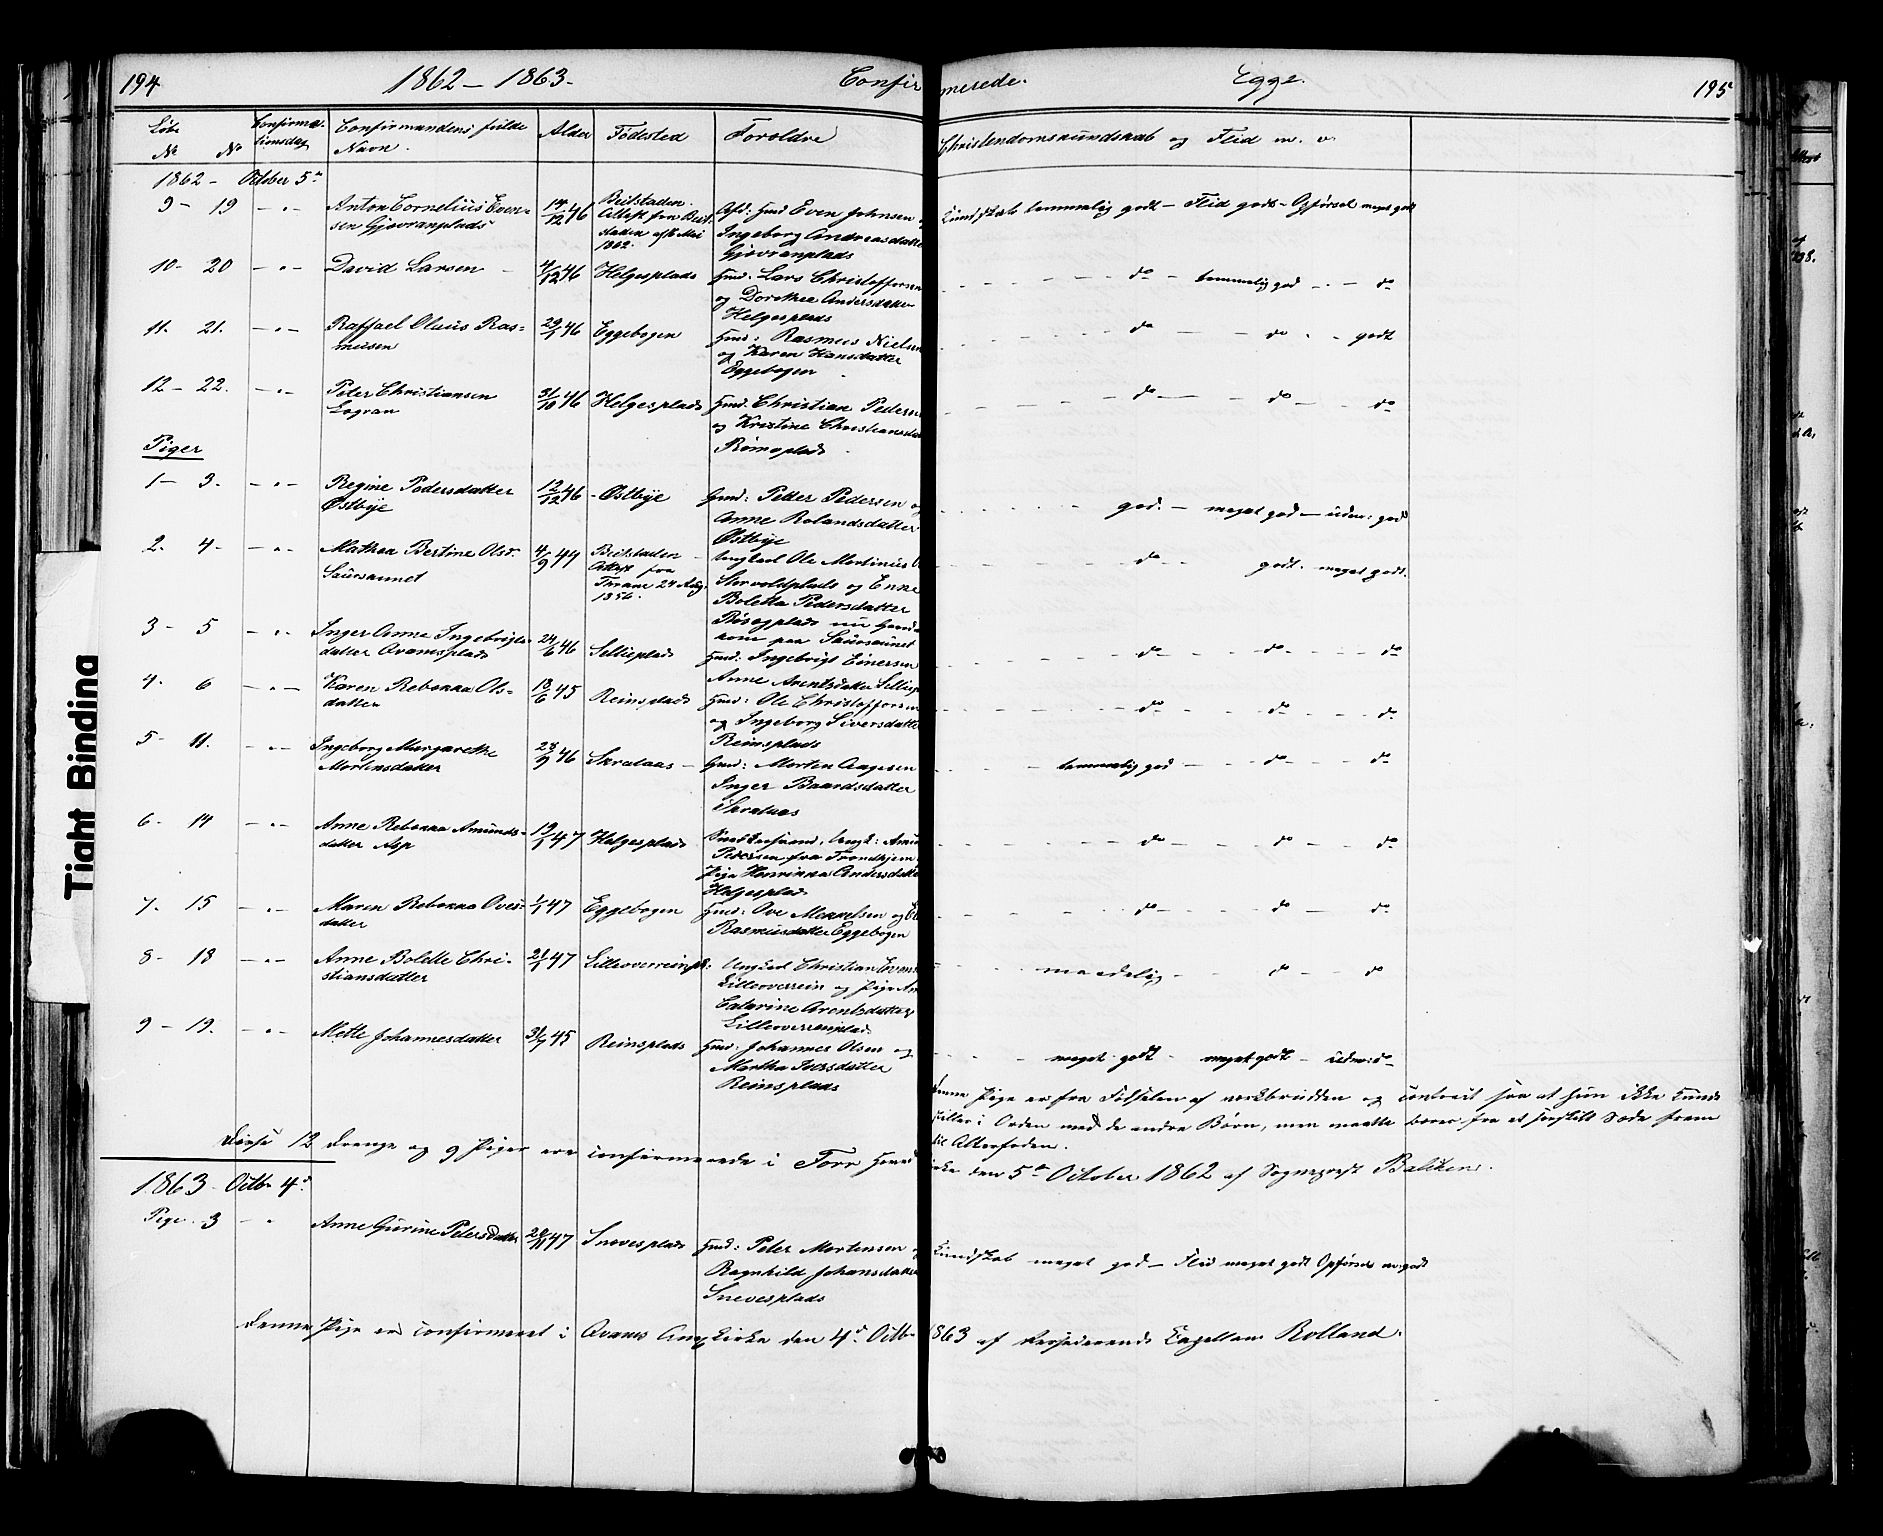 194 1862 – 1863. Confirmerede. Egge. 195
Løbe
No No
Confirma-
tionsdag
Confirmandens fulde
Navn.
Alder
Fødested
Foreldre
Christendomskundskab og Flid m. v.
1862 – October 5te
9 – 19 – " – Anton Cornelius Even-
sen Gjøvranplads
14/12 46
Beitstaden.
Attest fra Beit-
staden
1862.
Hmd Even Johnsen
Ingeborg Andreasdatter
Gjøvranplads
Kundskab temmelig godt – Flid godt – Opførsel meget godt
10 – 20 – " – David Larsen
4/12 46 Helgesplads
Hmd: Lars Christoffersen
og Dorothea Andersdatter
Helgesplads
do – temmelig god – do
11. 21. – " – Raffael Olaus Ras-
mussen
29/1 46 Eggebogen
Hmd: Rasmus Nielsen
og Karen Hansdatter
Eggebogen
do – do godt
12 – 22. – " – Peter Christiansen
Logran
31/10 46 Helgesplads
Hmd. Christian Pedersen
og Kristine Christiansdatter
Rømoplads
do – do – do
Piger
1 – 3. – " – Regine Pedersdatter
Østbye
12/12 46 – Østbye
Hmd: Petter Pedersen og
Anne Rolandsdatter
Østbye
god. – meget god – udm: god
2. 4. – " – Mathea Bertine Olsd.
Saursaunet
4/9 44
Beitstaden
Attest fra
24 Aug.
1856.
Ungkarl Ole Martinus
Storvoldplads og Enke
Boletta Pedersdatter
nu
paa Saursaunet
do godt. meget godt.
3 – 5 – " – Inger Anne Ingebrigts-
datter Qvamsplads
24/6 46 Sellieplads
Hmd: Ingebrigt Einersen
Anne Arentsdatter Sellieplads
do do do
4. 6 – " – Karen Rebekka Ols-
datter
18/6 45 Reinsplads
Hmd: Ole Christoffersen
og Ingeborg Siversdatter
Reinsplads
do do do
5 – 11. – " – Ingeborg Margarethe
Mortensdatter
28/9 46 Skralaas –
Hmd: Morten Aagesen
Inger Baardsdatter
Skralaas
temmelig god – do – do
6. 14 – " – Anne Rebekka Amunds-
datter Asp
19/1 47 Helgesplads
Ungk: Amund
Pedersen fra Trondhjem
Pige Henrikka Andersdatter
Helgesplads
do do do
7. 15 – " – Maren Rebekka Oves-
datter
1/1 47 Eggebogen
Hmd: Ove Mekkelsen og
Rasmusdatter Eggebogen
do do – do
8 – 18 – " – Anne Bolette Chri-
stiansdatter
21/1 47 Lilleoverreinpl:
Ungkarl Christian Evens
Lilleoverrein og Pige
Catarine Arentsdatter
Lilleoverreinplad
maadelig – do – do
9 – 19. – " – Mette Johannesdatter
31/7 45 Reinsplads
Hmd: Johannes Olsen og
Martha Iversdatter
Reinsplads
meget godt – meget godt – udm: do
Denne Pige er fra Fødselen af værkbrudden og contract saa at hun ikke kunde
stilles i Orden med de andre Børn, men maatte bæres fra et særskilt Sæde frem
til Alterfoden.
Disse 12 Drenge og 9 Piger ere confirmerede i For Hovedkirke den 5te October 1862 af Sognepræst Balchen.
1863 – Octb. 4de
Pige. 3 – " Anne Gurine Petersdatter
28/11 47 Snevesplads
Hmd: Peter Mortensen og
Ragnhild Johansdatter
Snevesplads
Kundskab meget god – Flid meget godt Opførsel m. godt
Denne Pige er confirmeret i Qvams Anx Kirke den 4de Octb. 1863 af residerende Capellan Rolland.
Tight Binding